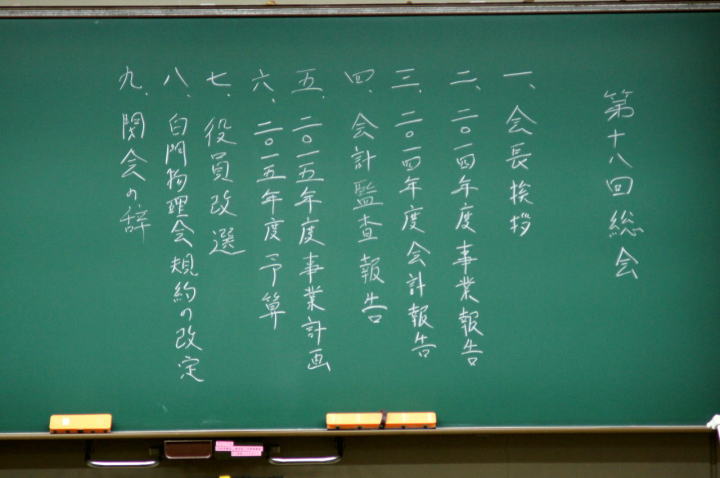 第十八回総会
一、会長挨拶
二、二〇一四年度事業報告
三、二〇一四年度会計報告
四、会計監査報告
五、二〇一五年度事業計画
六、二〇一五年度予算
七、役員改選
八、白門物理会規約の改定
九、閉会の辞